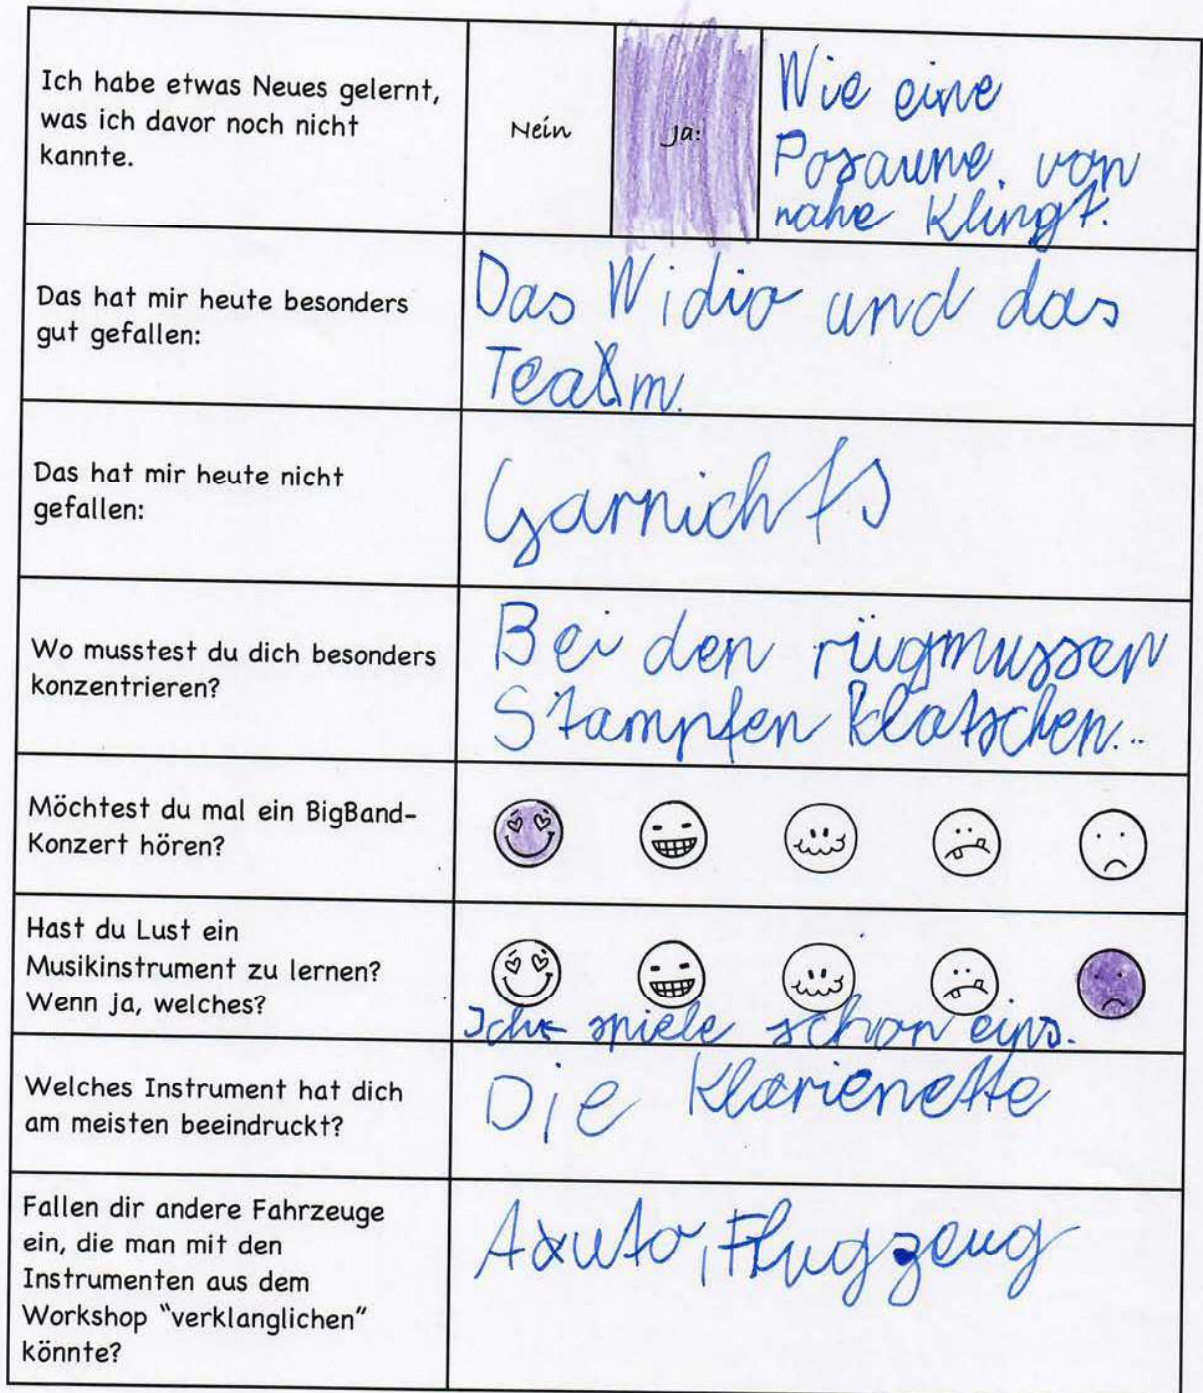 Ich habe etwas Neues gelernt,
was ich davor noch nicht
kannte.
Nein
Ja:
Wie eine
Posaune. von
nahe klingt.
Das hat mir heute besonders
gut gefallen:
Das Widio und das
Team.
Das hat mir heute nicht
gefallen:
Garnichts
Wo musstest du dich besonders
konzentrieren?
Bei den rügmussen
Stampfen klatschen..
Möchtest du mal ein BigBand-
Konzert hören?
Hast du Lust ein
Musikinstrument zu lernen?
Wenn ja, welches?
Ich spiele schon eins.
Welches Instrument hat dich
am meisten beeindruckt?
Die Klarienette
Fallen dir andere Fahrzeuge
ein, die man mit den
Instrumenten aus dem
Workshop "verklanglichen"
könnte?
Auto, Flugzeug